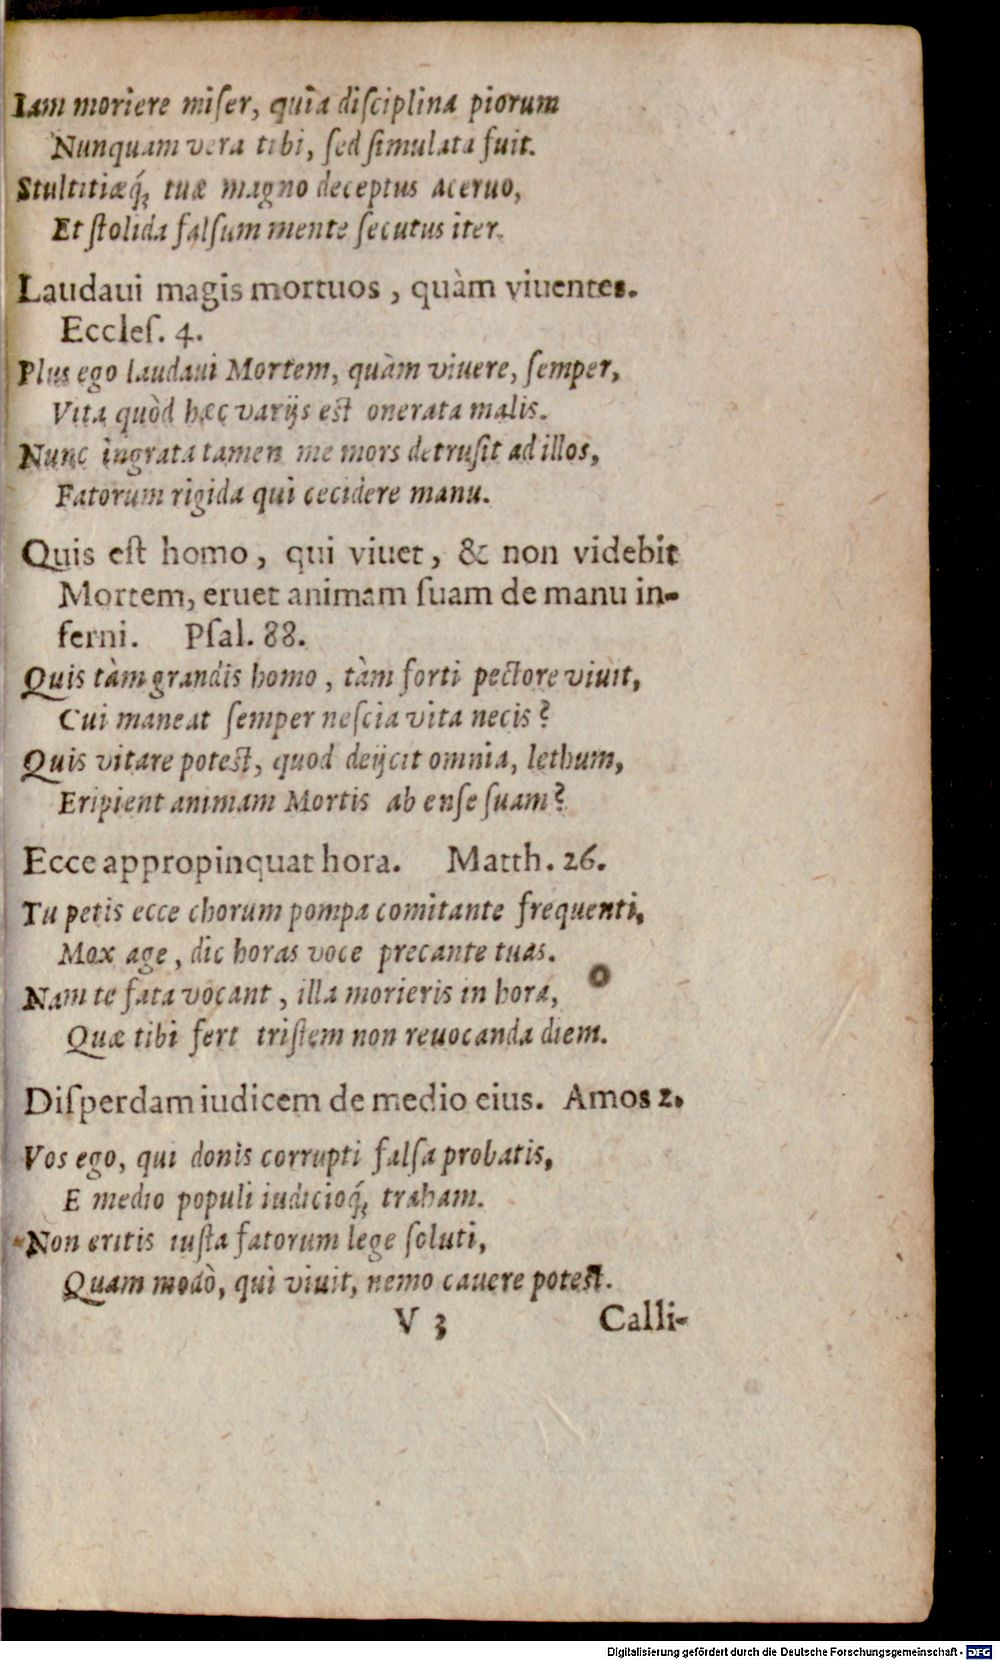 Iam moriere miſer, quia diſciplina piorum
Nunquam vera tibi, ſed ſimulata fuit.
Stultitiæq́; tuæ magno deceptus aceruo,
Et ſtolida falſum mente ſecutus iter.
Laudaui magis mortuos, quàm viuentes.
Eccleſ. 4.
Plus ego laudaui Mortem, quàm viuere, ſemper,
Vita quòd hæc varijs eſt onerata malis.
Nunc ingrata tamen me mors detruſit ad illos,
Fatorum rigida qui cecidere manu.
Quis eſt homo, qui viuet, & non videbit
Mortem, eruet animam ſuam de manu in-
ferni. Pſal. 88.
Quis tàm grandis homo, tàm forti pectore viuit,
Cui maneat ſemper neſcia vita necis?
Quis vitare poteſt, quod deijcit omnia, lethum,
Eripient animam Mortis ab enſe ſuam?
Ecce appropinquat hora. Matth. 26.
Tu petis ecce chorum pompa comitante frequenti,
Mox age, dic horas voce precante tuas.
Nam te fata vocant, illa morieris in hora,
Quæ tibi fert triſtem non reuocanda diem.
Diſperdam iudicem de medio eius. Amos 2.
Vos ego, qui donis corrupti falſa probatis,
E medio populi iudicioq́; traham.
Non eritis iuſta fatorum lege ſoluti,
Quam modò, qui viuit, nemo cauere poteſt.
V 3 Calli-
Digitalisierung gefördert durch die Deutsche Forschungsgemeinschaft - DFG